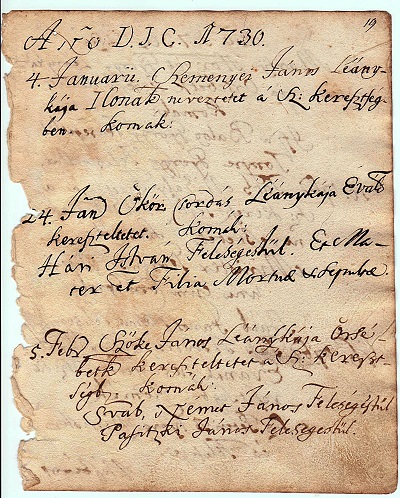 19
Año D.I.C. 1730.
4. Januarii. Szemenyei János Leány-
kája Ilonak neveztetet â Sz: keresztseg-
ben. Komak:
24. Jan Ökör Csordás Leánykája Evak
kereszteltetet. Komak:
Hári István Felesegestül. Et Ma-
ter et Filia Mortuæ & sepultæ
5. Febr Szöke János Leánykája Örsé-
betk kereszteltetet â Sz: kereszt-
ségb Komák:
Sváb, Nemet János Feleségéstül
Pasitzki János Felesegestül.